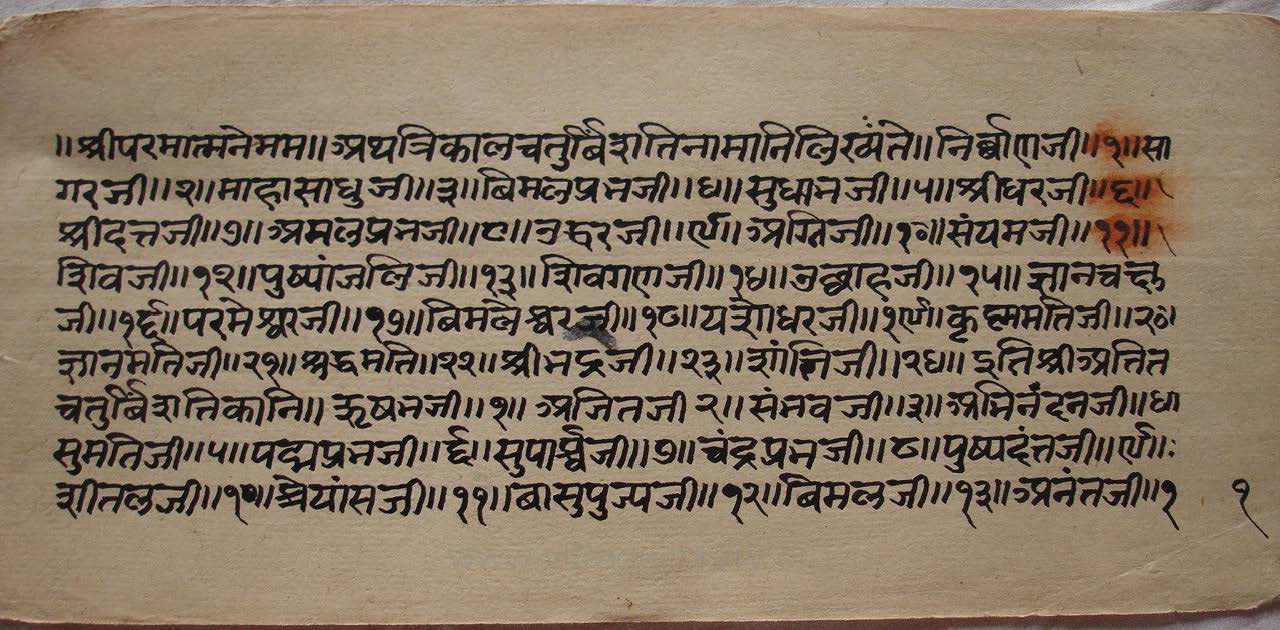 ॥श्रीपरमात्मनेममः॥अथत्रिकालचतुर्बिंशतिनामानिलिख्यंते॥निर्ब्बाणजी॥१॥सा
गरजी॥२॥माहासाधुजी॥३॥बिमलप्रभजी॥४॥सुधाभजी॥५॥श्रीधरजी॥६॥
श्रीदत्तजी॥७॥अमलप्रभजी॥८॥उद्धरजी॥९॥अग्निजी॥१०॥संयमजी॥११॥
शिवजी॥१२॥पुष्पांजलिजी॥१३॥शिवगणजी॥१४॥उत्साहजी॥१५॥ज्ञानचन्द्र
जी॥१६॥परमेश्वरजी॥१७॥बिमलेश्वरजी॥१८॥यशोधरजी॥१९॥कृष्णमतिजी॥२०॥
ज्ञानमतिजी॥२१॥श्रुद्धमति॥२२॥श्रीभद्रजी॥२३॥शांतिजी॥२४॥इतिश्रीअतित
चतुर्बिंशतिकानि॥ऋषभजी॥१॥अजितजी२॥संभवजी॥३॥अभिनंदनजी॥४॥
सुमतिजी॥५॥पद्मप्रभजी॥६॥सुपार्श्वजी॥७॥चंद्रप्रभजी॥८॥पुष्पदंतजी॥९॥
शीतलजी॥१०॥श्रेयांसजी॥११॥बासुपुज्यजी॥१२॥बिमलजी॥१३॥अनंतजी॥१
१